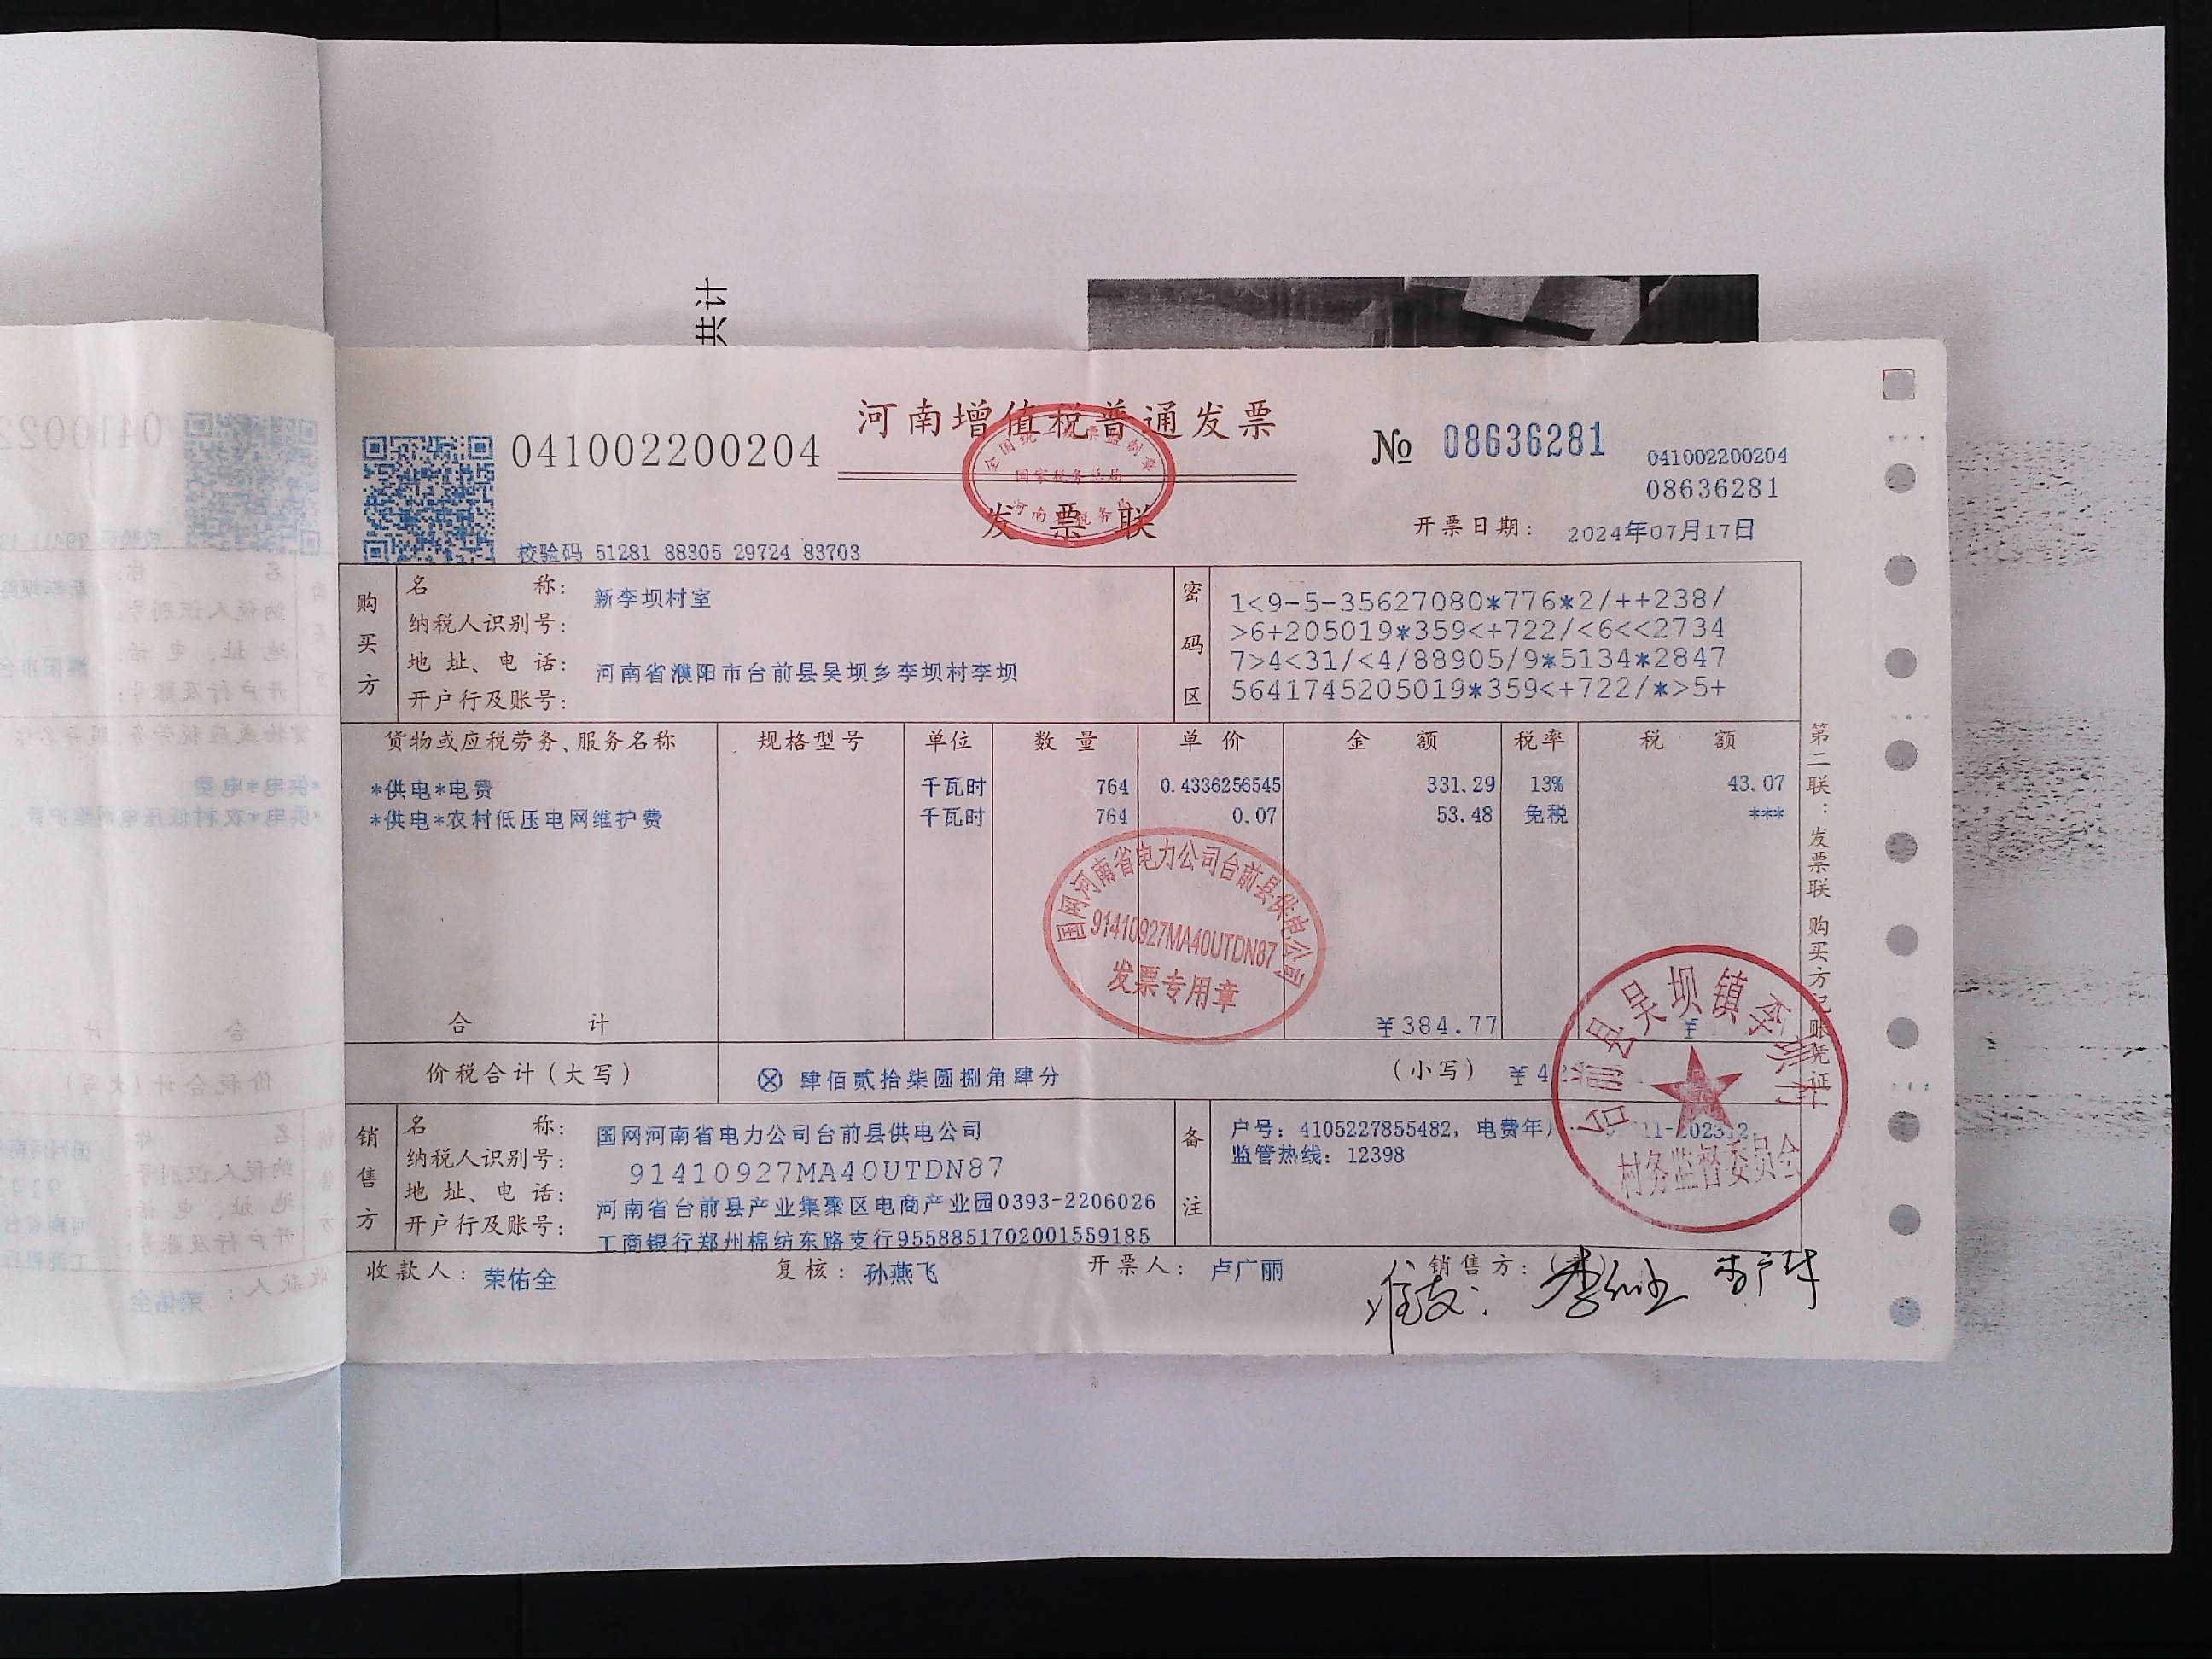 共计
河南增值税普通发票
041002200204
№ 08636281
041002200204
08636281
全国统一发票监制章
国家税务总局
发票联
开票日期: 2024年07月17日
校验码 51281 88305 29724 83703
购买方
名 称: 新李坝村室
纳税人识别号:
地址、电话: 河南省濮阳市台前县吴坝乡李坝村李坝
开户行及账号:
密码区
1<9-5-35627080*776*2/++238/
>6+205019*359<+722/<6<<2734
7>4<31/<4/88905/9*5134*2847
5641745205019*359<+722/*>5+
货物或应税劳务、服务名称 规格型号 单位 数量 单价 金额 税率 税额
*供电*电费 千瓦时 764 0.4336256545 331.29 13% 43.07
*供电*农村低压电网维护费 千瓦时 764 0.07 53.48 免税 ***
国网河南省电力公司台前县供电公司
91410927MA40UTDN87
发票专用章
合计 ¥384.77 ¥
价税合计(大写) ⊗ 肆佰贰拾柒圆捌角肆分 (小写) ¥4
第二联:发票联 购买方记账凭证
台前县吴坝镇李坝村
村务监督委员会
销售方
名 称: 国网河南省电力公司台前县供电公司
纳税人识别号: 91410927MA40UTDN87
地址、电话: 河南省台前县产业集聚区电商产业园0393-2206026
开户行及账号: 工商银行郑州棉纺东路支行9558851702001559185
备注
户号: 4105227855482, 电费年
监管热线: 12398
收款人: 荣佑全 复核: 孙燕飞 开票人: 卢广丽 销售方:
准支: